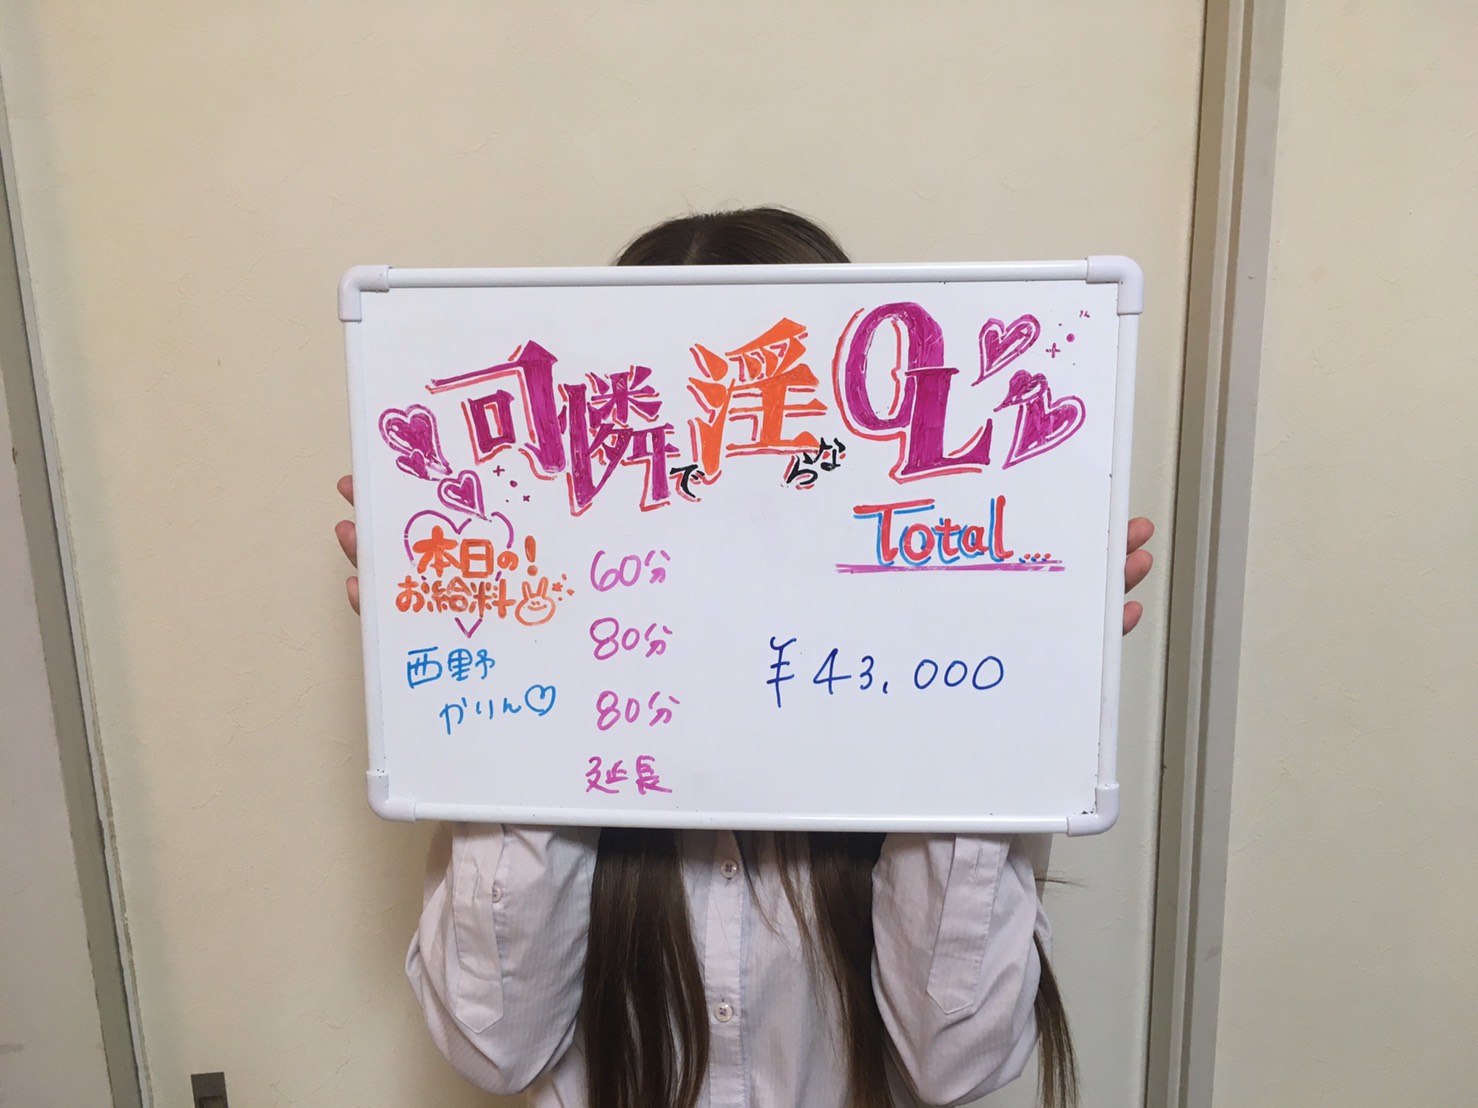 可憐で淫らなOL
Total...
本日の!
お給料
西野
かりん♡
60分
80分
80分
延長
¥43,000